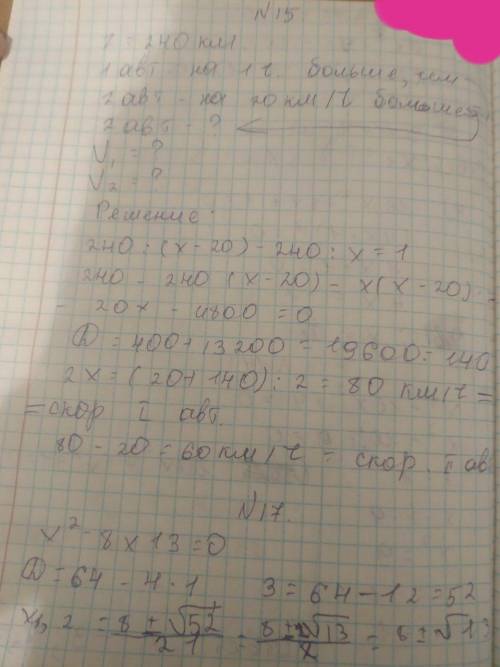 N15.
? = 240 км.
1 авт - на 1 ч больше, чем
2 авт - на 20 км/ч больше
2 авт - ?
V₁ = ?
V₂ = ?
Решение:
240 : (х - 20) - 240 : х = 1
240 - 240 (х - 20) = х(х - 20)
- 20х - 4800 = 0
D = 400 + 13200 = 19600 = 140
2х = (20 + 140) : 2 = 80 км/ч =
= скор I авт.
80 - 20 = 60 км/ч - скор. I ав
N17.
х² - 8х 13 = 0
D = 64 - 4 · 1 3 = 64 - 12 = 52
х₁,₂ = 8 ± √52 / 21 = 8 ± 2√13 / х = 6 ± √13